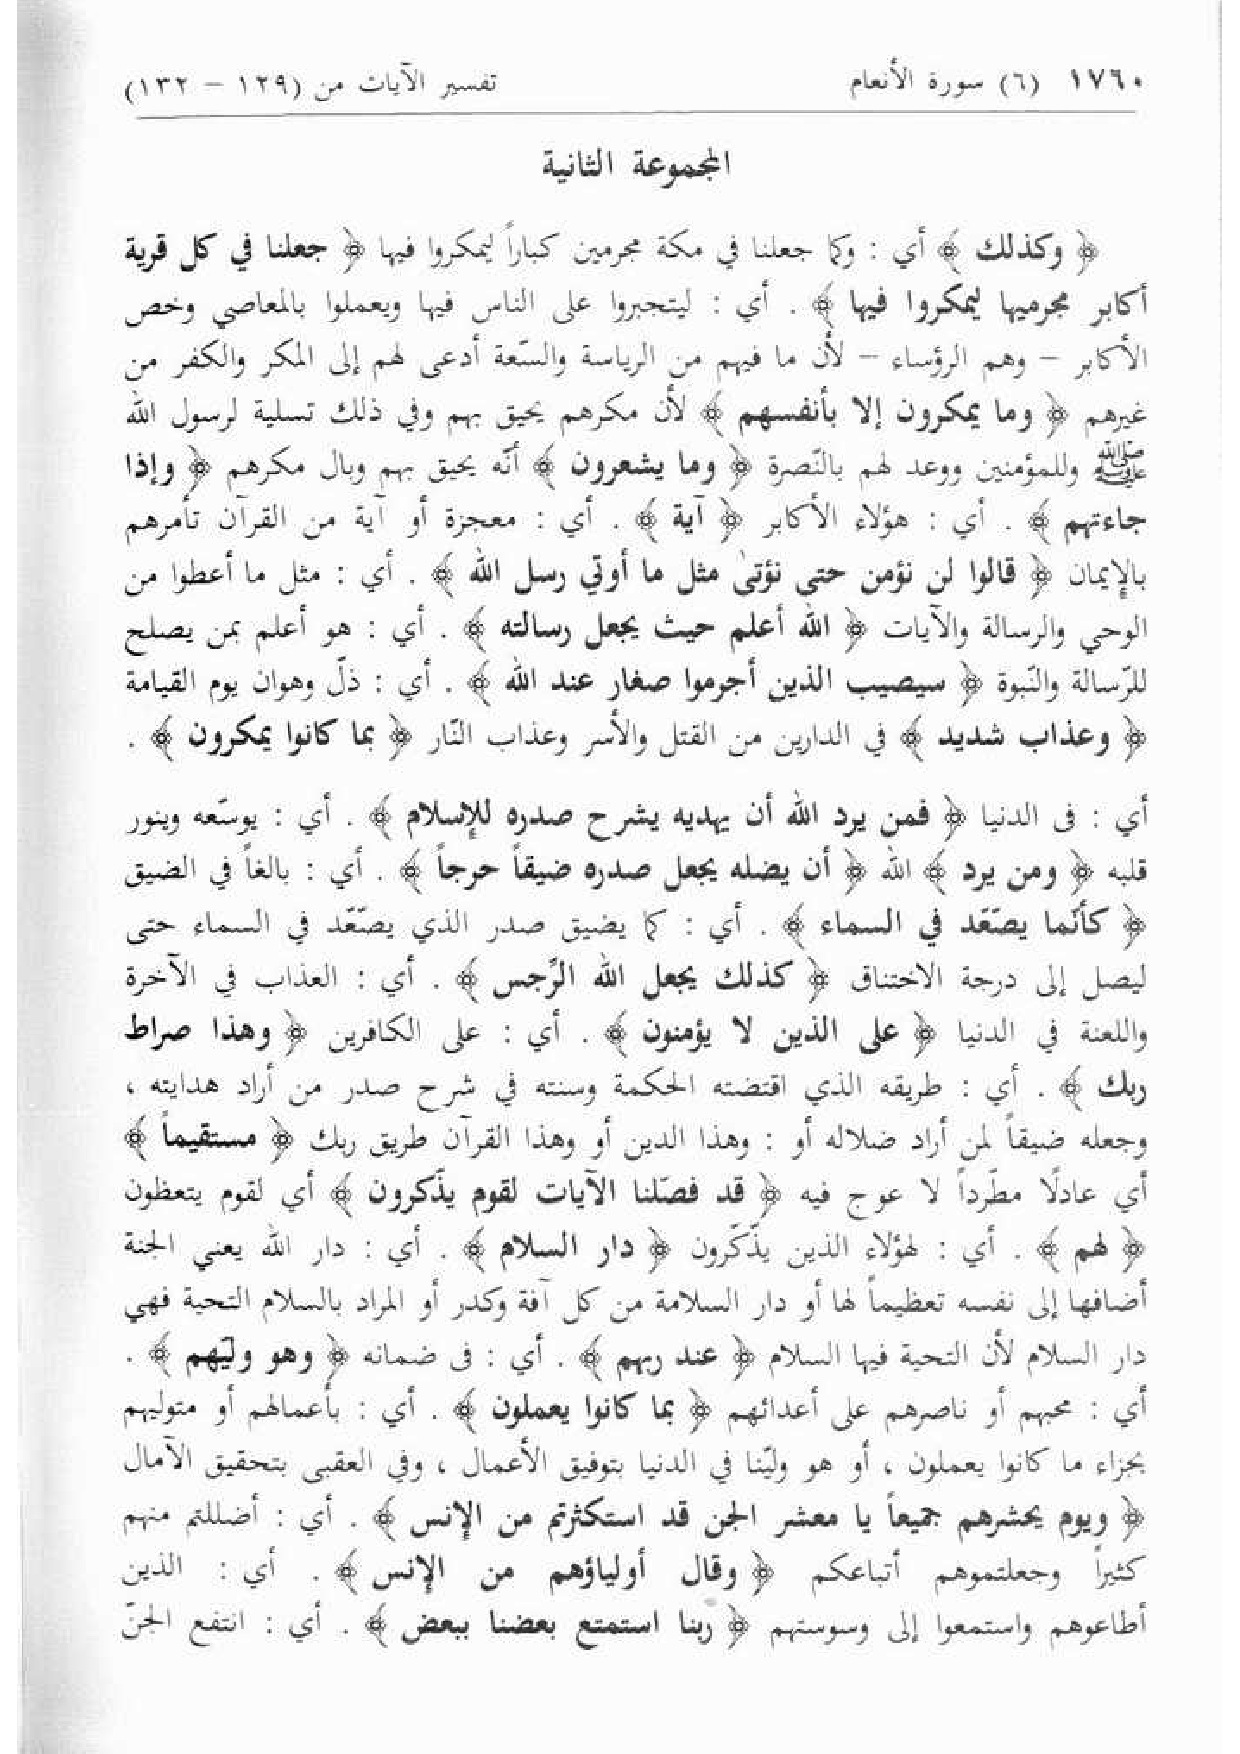 ١٧٦٠ (٦) سورة الأنعام تفسير الآيات من (١٢٩ – ١٣٢)
المجموعة الثانية
﴿ وكذلك ﴾ أي : وكما جعلنا في مكة مجرمين كباراً ليمكروا فيها ﴿ جعلنا في كل قرية
أكابر مجرميها ليمكروا فيها ﴾ . أي : ليتجبروا على الناس فيها ويعملوا بالمعاصي وخص
الأكابر – وهم الرؤساء – لأن ما فيهم من الرياسة والسّعة أدعى لهم إلى المكر والكفر من
غيرهم ﴿ وما يمكرون إلا بأنفسهم ﴾ لأن مكرهم يحيق بهم وفي ذلك تسلية لرسول الله
ﷺ وللمؤمنين ووعد لهم بالنّصرة ﴿ وما يشعرون ﴾ أنّه يحيق بهم وبال مكرهم ﴿ وإذا
جاءتهم ﴾ . أي : هؤلاء الأكابر ﴿ آية ﴾ . أي : معجزة أو آية من القرآن تأمرهم
بالإيمان ﴿ قالوا لن نؤمن حتى نؤتىٰ مثل ما أوتي رسل الله ﴾ . أي : مثل ما أعطوا من
الوحي والرسالة والآيات ﴿ الله أعلم حيث يجعل رسالته ﴾ . أي : هو أعلم بمن يصلح
للرّسالة والنّبوة ﴿ سيصيب الذين أجرموا صغار عند الله ﴾ . أي : ذلّ وهوان يوم القيامة
﴿ وعذاب شديد ﴾ في الدارين من القتل والأسر وعذاب النّار ﴿ بما كانوا يمكرون ﴾ .
أي : فى الدنيا ﴿ فمن يرد الله أن يهديه يشرح صدره للإسلام ﴾ . أي : يوسّعه وينور
قلبه ﴿ ومن يرد ﴾ الله ﴿ أن يضله يجعل صدره ضيقاً حرجاً ﴾ . أي : بالغاً في الضيق
﴿ كأنّما يصّعّد في السماء ﴾ . أي : كما يضيق صدر الذي يصّعّد في السماء حتى
ليصل إلى درجة الاختناق ﴿ كذلك يجعل الله الرِّجس ﴾ . أي : العذاب في الآخرة
واللعنة في الدنيا ﴿ على الذين لا يؤمنون ﴾ . أي : على الكافرين ﴿ وهذا صراط
ربك ﴾ . أي : طريقه الذي اقتضته الحكمة وسنته في شرح صدر من أراد هدايته ،
وجعله ضيقاً لمن أراد ضلاله أو : وهذا الدين أو وهذا القرآن طريق ربك ﴿ مستقيماً ﴾
أي عادلًا مطّرداً لا عوج فيه ﴿ قد فصّلنا الآيات لقوم يذّكرون ﴾ أي لقوم يتعظون
﴿ لهم ﴾ . أي : لهؤلاء الذين يذّكّرون ﴿ دار السلام ﴾ . أي : دار الله يعني الجنة
أضافها إلى نفسه تعظيماً لها أو دار السلامة من كل آفة وكدر أو المراد بالسلام التحية فهي
دار السلام لأن التحية فيها السلام ﴿ عند ربهم ﴾ . أي : فى ضمانه ﴿ وهو وليّهم ﴾ .
أي : محبهم أو ناصرهم على أعدائهم ﴿ بما كانوا يعملون ﴾ . أي : بأعمالهم أو متوليهم
بجزاء ما كانوا يعملون ، أو هو وليّنا في الدنيا بتوفيق الأعمال ، وفي العقبى بتحقيق الآمال
﴿ ويوم يحشرهم جميعاً يا معشر الجن قد استكثرتم من الإنس ﴾ . أي : أضللتم منهم
كثيراً وجعلتموهم أتباعكم ﴿ وقال أولياؤهم من الإنس ﴾ . أي : الذين
أطاعوهم واستمعوا إلى وسوستهم ﴿ ربنا استمتع بعضنا ببعض ﴾ . أي : انتفع الجنّ